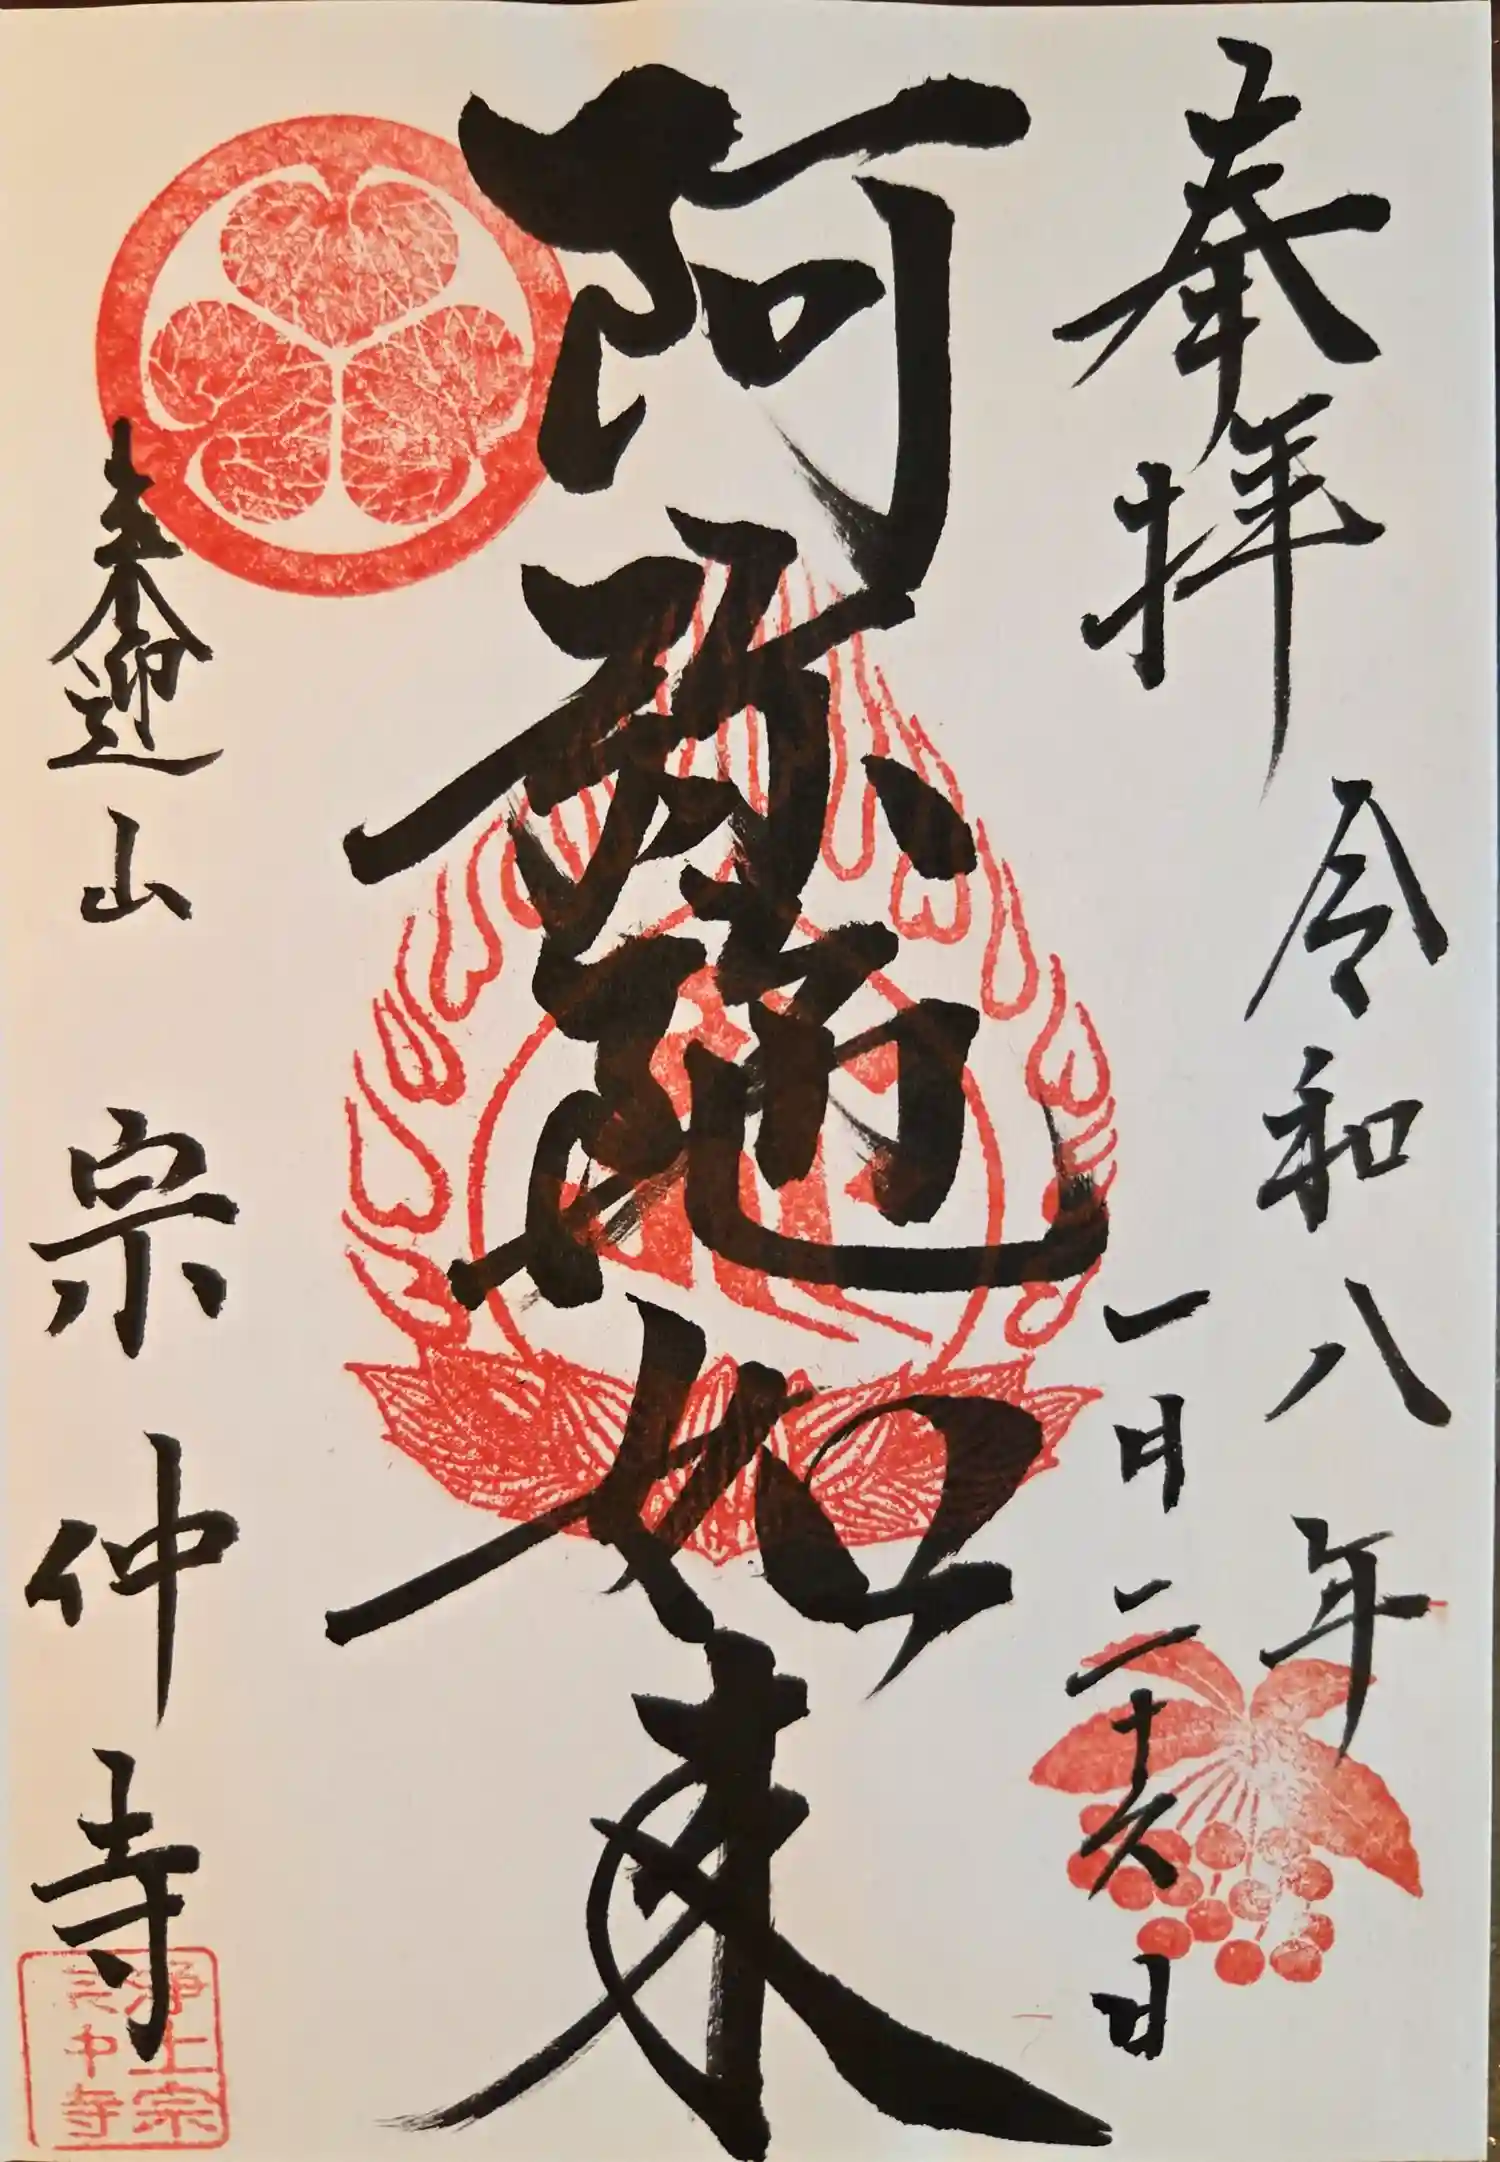 奉拝
令和八年
一月二十六日
阿弥陀如来
来迎山 宗仲寺
浄土宗
宗仲寺